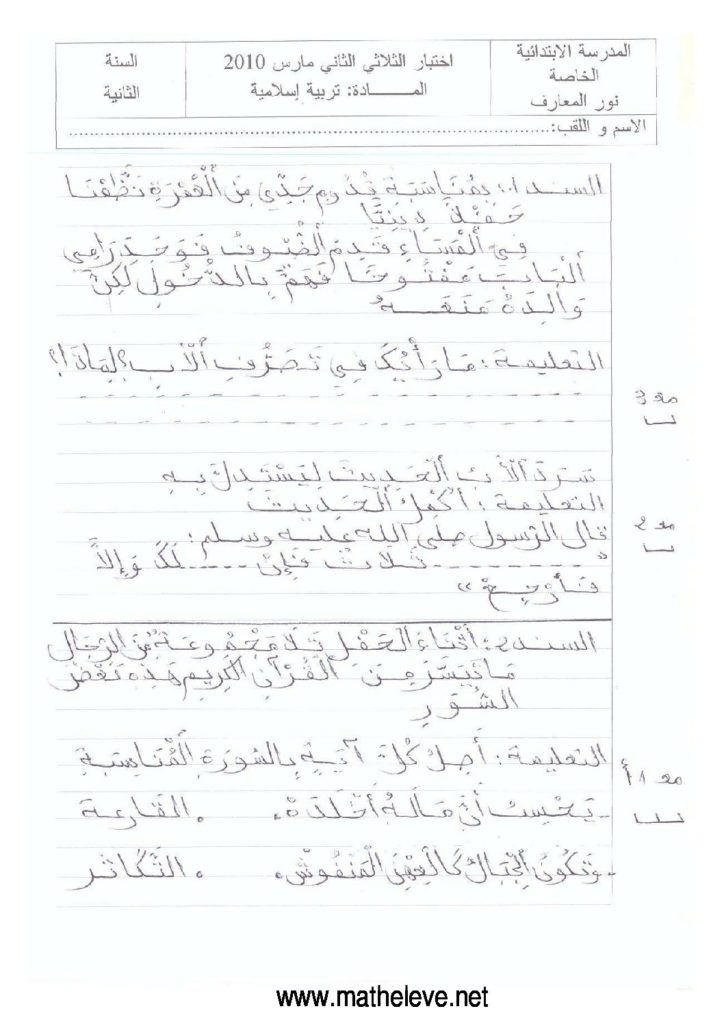 المدرسة الابتدائية
الخاصة
نور المعارف
اختبار الثلاثي الثاني مارس 2010
المـــــادة: تربية إسلامية
السنة
الثانية
الاسم و اللقب:
السند 1: بِمُنَاسَبَةِ قُدُومِ جَدِّي مِنَ الْعُمْرَةِ نَظَّمْنَا
حَفْلاً دِينِيًّا
فِي الْمَسَاءِ قَدِمَ الضُّيُوفُ فَوَجَدَ رَامِي
الْبَابَ مَفْتُوحًا فَهَمَّ بِالدُّخُولِ لَكِنَّ
وَالِدَهُ مَنَعَهُ
التعليمة: مَا رَأْيُكَ فِي تَصَرُّفِ الْأَبِ؟ لِمَاذَا؟
مع 3
سَرَدَ الْأَبُ الْحَدِيثَ لِيَسْتَدِلَّ بِهِ
التعليمة: أُكْمِلُ الْحَدِيثَ
مع 2
قال الرّسول صلى الله عليه وسلم:
" ........ ثَلَاثٌ فَإِنْ ..... لَكَ وَإِلاَّ
فَارْجِعْ »
السند 2: أَثْنَاءَ الْحَفْلِ تَلَا مَجْمُوعَةٌ مِنَ الرِّجَالِ
مَا تَيَسَّرَ مِنَ الْقُرْآنِ الْكَرِيمِ هَذِهِ بَعْضُ
السُّوَرِ
التعليمة: أَصِلُ كُلَّ آيَةٍ بِالسُّورَةِ الْمُنَاسِبَةِ
مع 1 أ
- يَحْسِبُ أَنَّ مَالَهُ أَخْلَدَهُ . . القَارِعَة
- وَتَكُونُ الْجِبَالُ كَالْعِهْنِ الْمَنْفُوشِ . . التَّكَاثر
www.matheleve.net